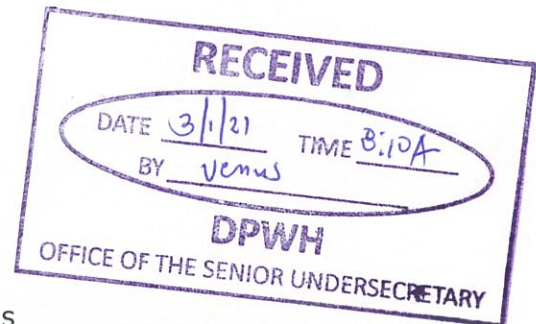 RECEIVED
DATE 3/1/21 TIME 8:10A
BY Venus
DPWH
OFFICE OF THE SENIOR UNDERSECRETARY
S